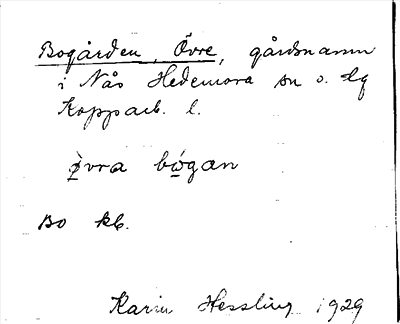 Bogården, Övre, gårdsnamn
i Nås Hedemora sn o. hg
Kopparb. l.
ø̀vra bὼgan
Bo kb.
Karin Hessling 1929